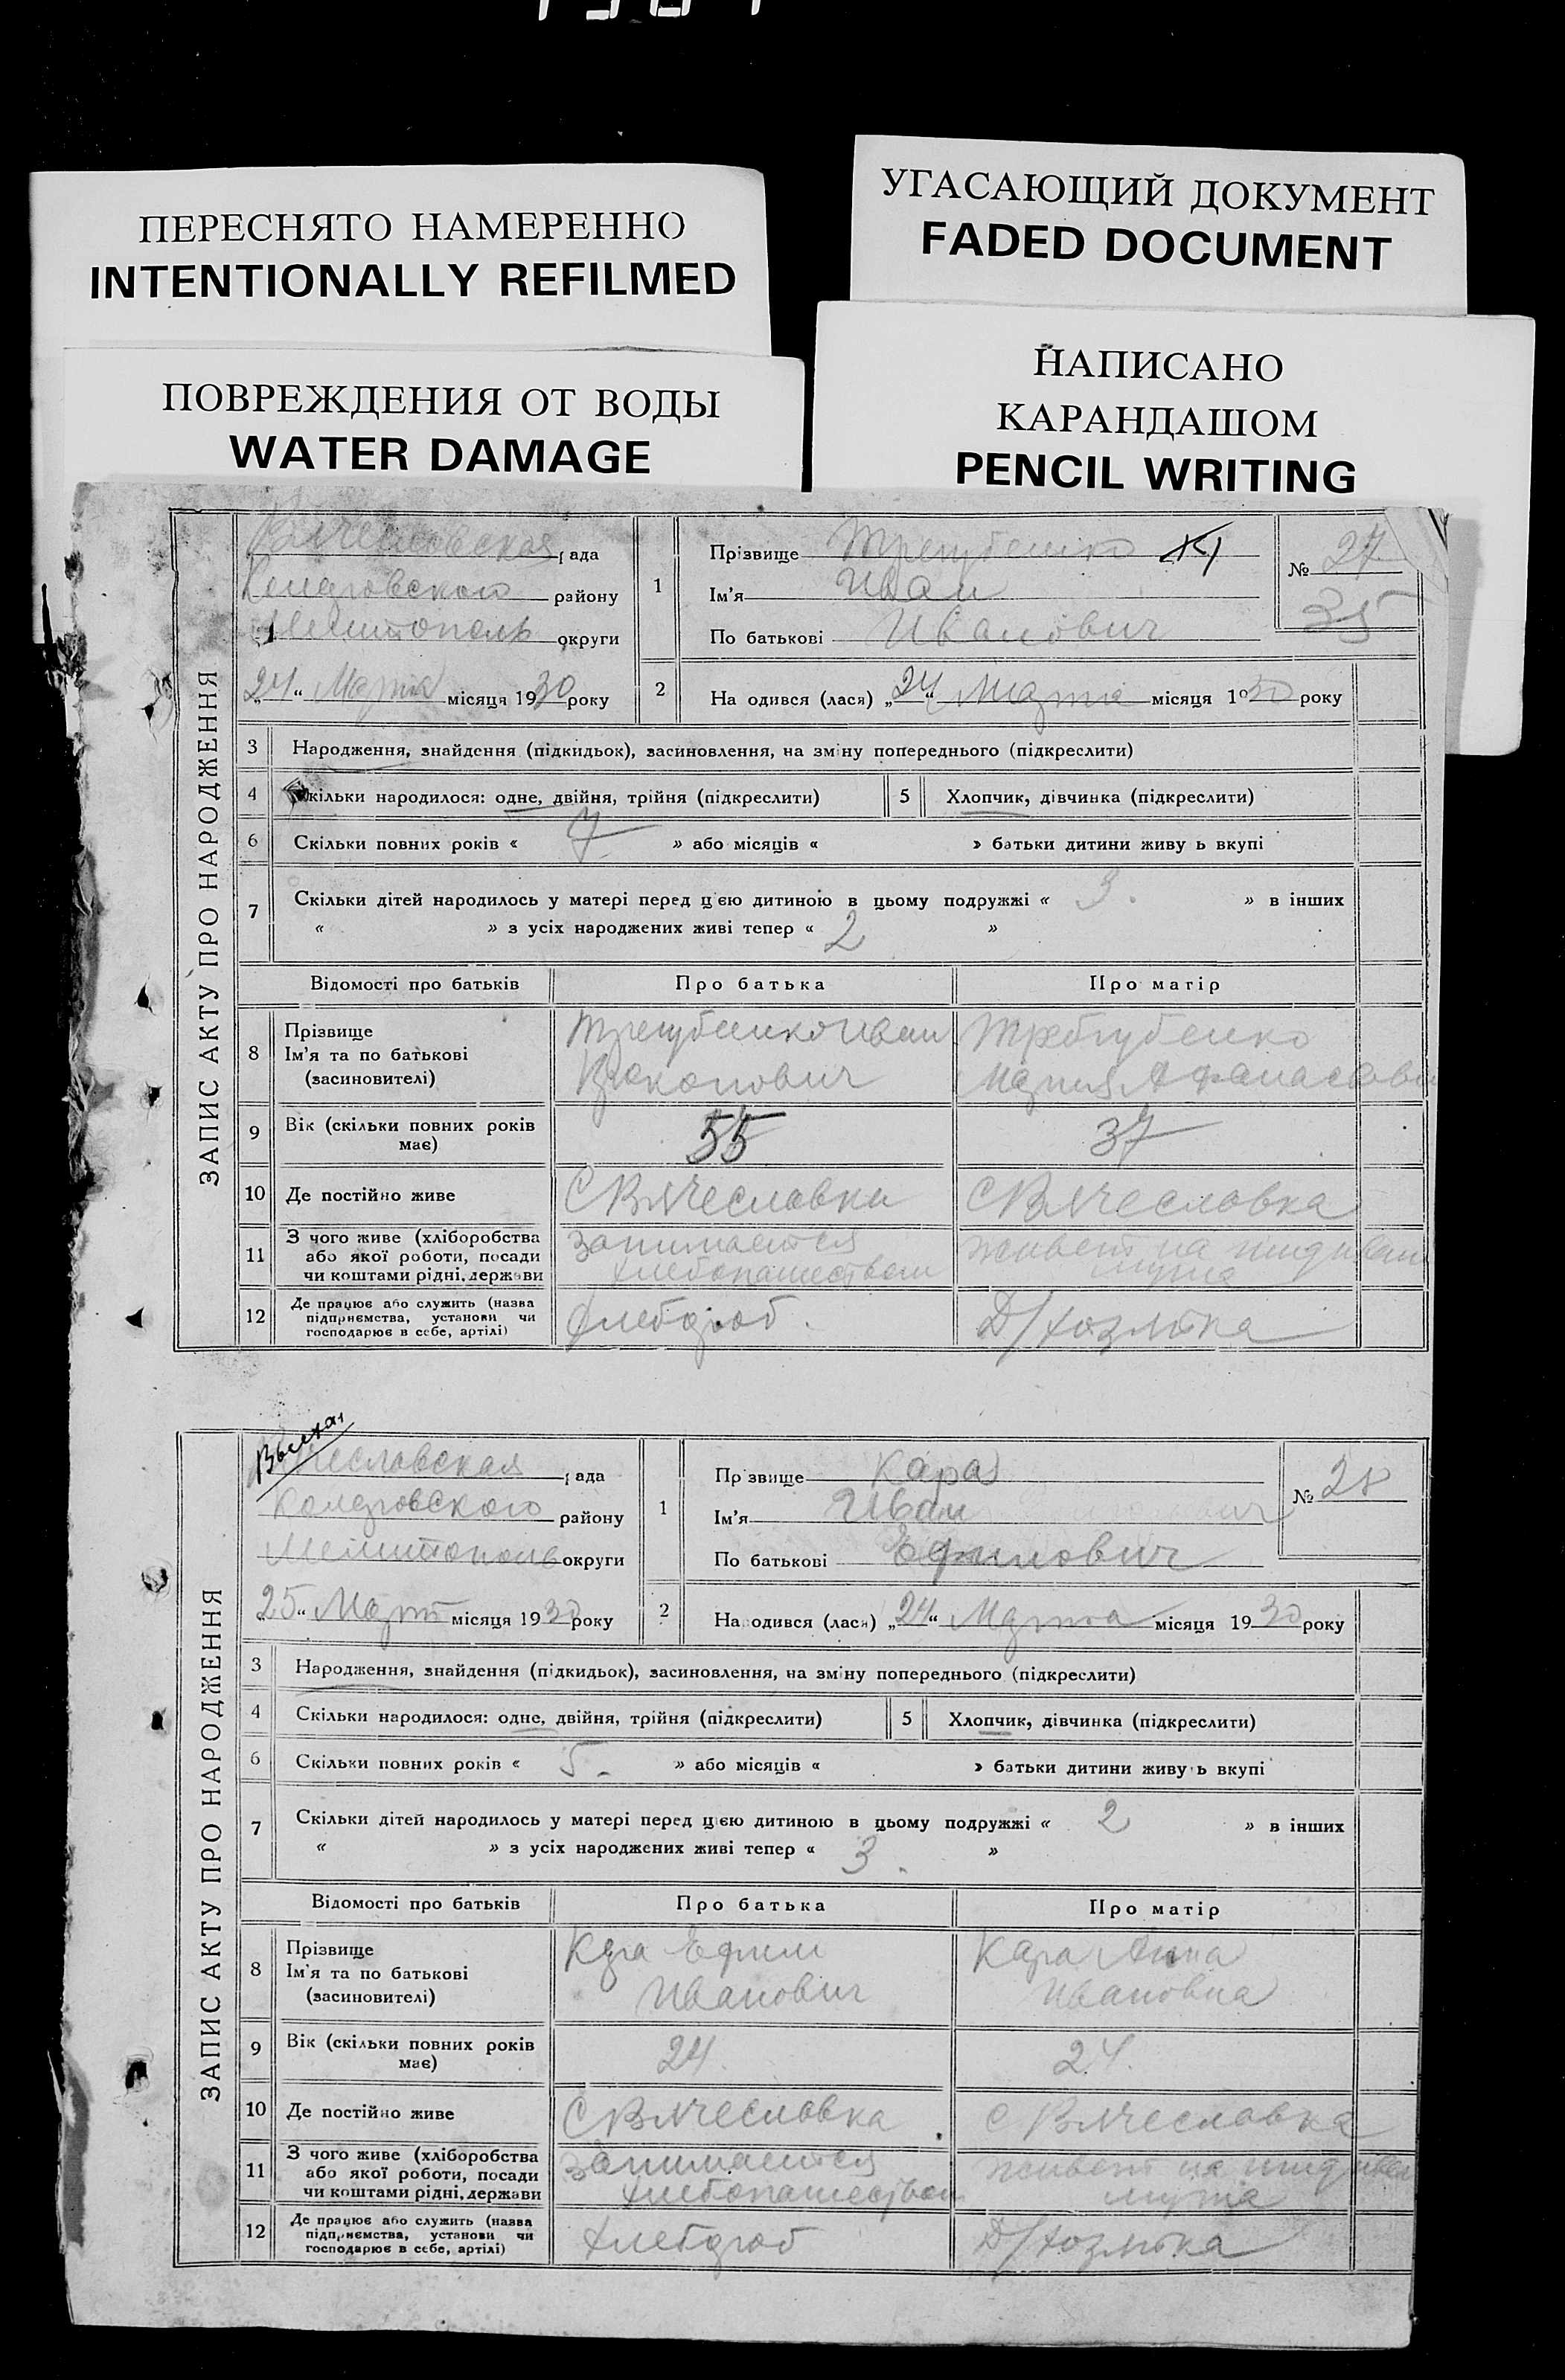 ПЕРЕСНЯТО НАМЕРЕННО
INTENTIONALLY REFILMED
УГАСАЮЩИЙ ДОКУМЕНТ
FADED DOCUMENT
ПОВРЕЖДЕНИЯ ОТ ВОДЫ
WATER DAMAGE
НАПИСАНО
КАРАНДАШОМ
PENCIL WRITING
ЗАПИС АКТУ ПРО НАРОДЖЕННЯ
Вячеславская рада
району
Мелитополь округи
24 Марта місяця 1930 року
1
Прізвище
Ім'я Иван
По батькові Иванович
№ 27
35
2
На одився (лася) „24“ Марта місяця 1930 року
3 Народження, знайдення (підкидьок), засиновлення, на зміну попереднього (підкреслити)
4 Скільки народилося: одне, двійня, трійня (підкреслити) 5 Хлопчик, дівчинка (підкреслити)
6 Скільки повних років « 7 » або місяців « » батьки дитини живу ь вкупі
7 Скільки дітей народилось у матері перед цією дитиною в цьому подружжі « 3. » в інших
« » з усіх народжених живі тепер « 2 »
Відомості про батьків Про батька Про матір
8 Прізвище
Ім'я та по батькові
(засиновителі)
Иван
Прокопович
Мария Афанасовн
9 Вік (скільки повних років має) 55 37
10 Де постійно живе С Вячеславка С Вячеславка
11 З чого живе (хліборобства
або якої роботи, посади
чи коштами рідні, держави
занимается
хлебопашеством
живет на иждивении
мужа
12 Де працює або служить (назва
підприємства, установи чи
господарює в себе, артілі)
хлебороб. Д/хозяйка
ЗАПИС АКТУ ПРО НАРОДЖЕННЯ
рада
району
Мелитополь округи
25 Март місяця 1930 року
1
Пр звище Кара
Ім'я Иван
По батькові Ефимович
№ 28
2
На одився (лася) „24“ Марта місяця 1930 року
3 Народження, знайдення (підкидьок), засиновлення, на зміну попереднього (підкреслити)
4 Скільки народилося: одне, двійня, трійня (підкреслити) 5 Хлопчик, дівчинка (підкреслити)
6 Скільки повних років « 5. » або місяців « » батьки дитини живу ь вкупі
7 Скільки дітей народилось у матері перед цією дитиною в цьому подружжі « 2 » в інших
« » з усіх народжених живі тепер « 3. »
Відомості про батьків Про батька Про матір
8 Прізвище
Ім'я та по батькові
(засиновителі)
Кара Ефим
Иванович
Кара Анна
Ивановна
9 Вік (скільки повних років має) 24. 24.
10 Де постійно живе С Вячеславка С Вячеславка
11 З чого живе (хліборобства
або якої роботи, посади
чи коштами рідні, держави
занимается
хлебопашеством
живет на иждивен
мужа
12 Де працює або служить (назва
підприємства, установи чи
господарює в себе, артілі)
хлебороб Д/хозяйка